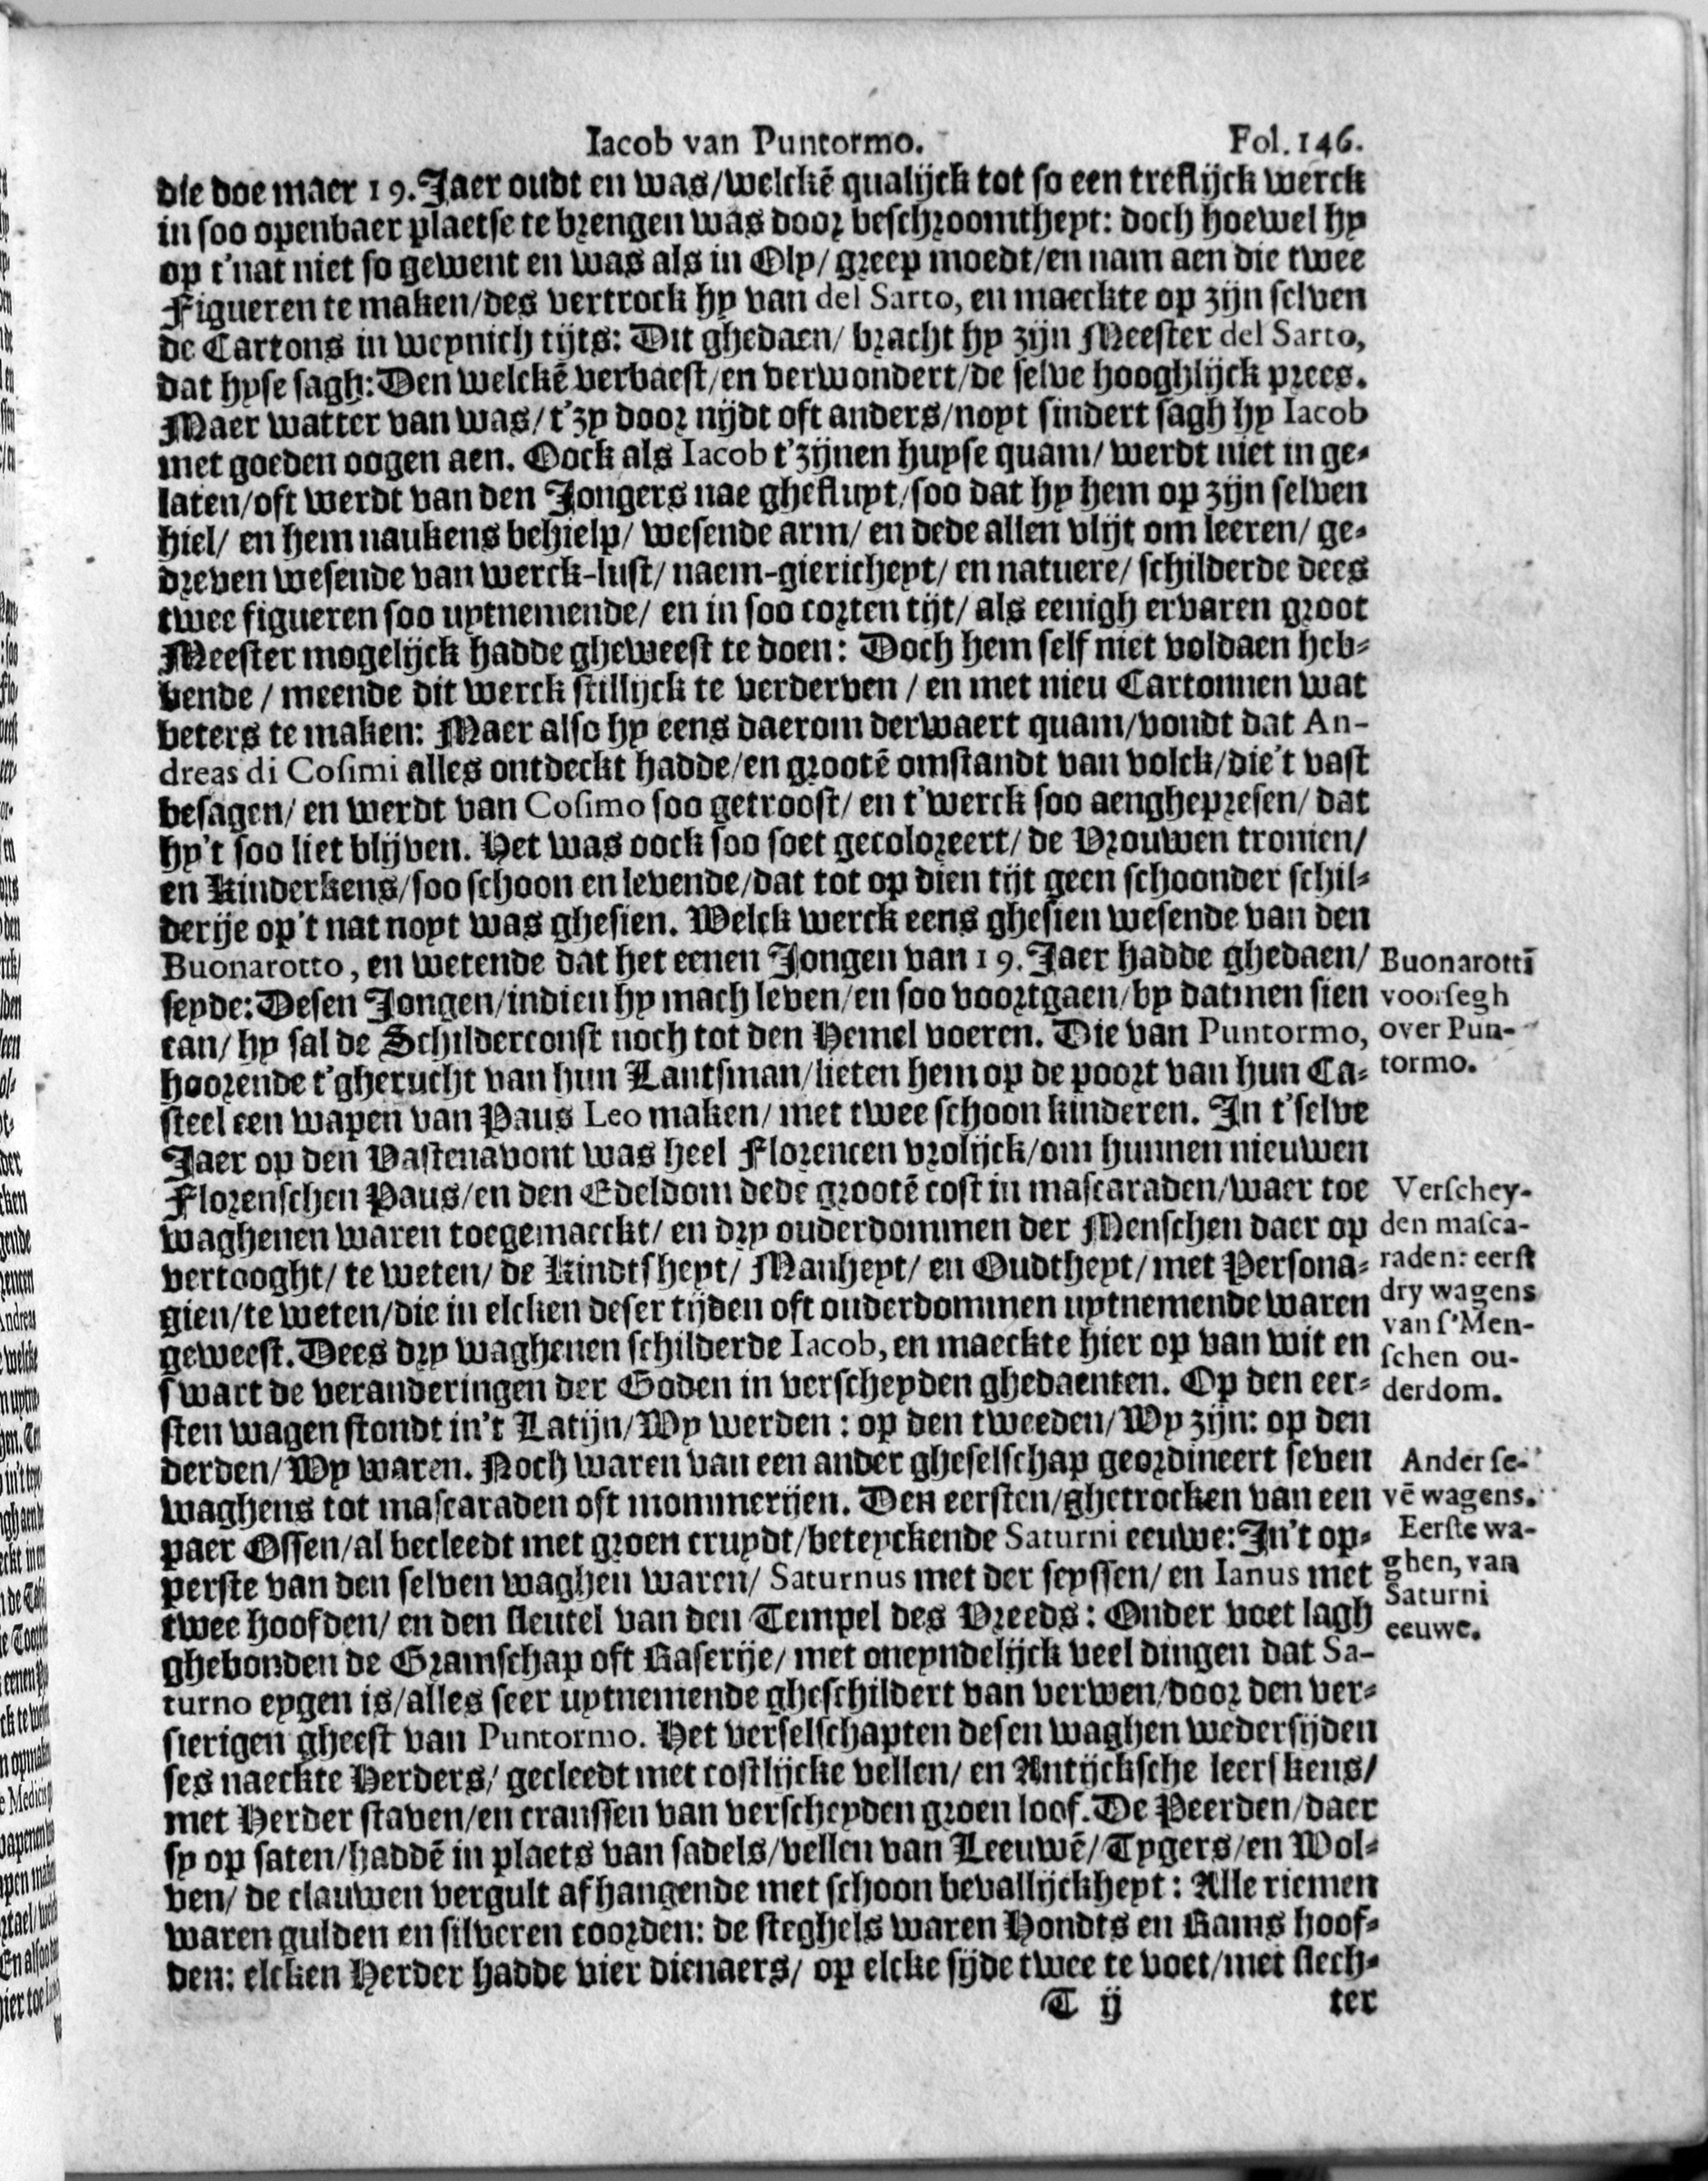 Iacob van Puntormo. Fol. 146.
die doe maer 19. Jaer oudt en was/welckē qualijck tot so een treflijck werck
in soo openbaer plaetse te brengen was door beschroomtheyt: doch hoewel hy
op t'nat niet so gewent en was als in Oly/ greep moedt/en nam aen die twee
Figueren te maken/des vertrock hy van del Sarto, en maeckte op zijn selven
de Cartons in weynich tijts: Dit ghedaen/ bracht hy zijn Meester del Sarto,
dat hyse sagh: Den welckē verbaest/en verwondert/de selve hooghlijck prees.
Maer watter van was/t'zy door nijdt oft anders/noyt sindert sagh hy Iacob
met goeden oogen aen. Oock als Iacob t'zijnen huyse quam/ werdt niet in ge-
laten/oft werdt van den Jongers nae ghefluyt/soo dat hy hem op zijn selven
hiel/ en hem naukens behielp/ wesende arm/ en dede allen vlijt om leeren/ ge-
dreven wesende van werck-lust/ naem-giericheyt/ en natuere/ schilderde dees
twee figueren soo uytnemende/ en in soo corten tijt/ als eenigh ervaren groot
Meester mogelijck hadde gheweest te doen: Doch hem self niet voldaen heb-
bende / meende dit werck stillijck te verderven / en met nieu Cartonnen wat
beters te maken: Maer also hy eens daerom derwaert quam/vondt dat An-
dreas di Cosimi alles ontdeckt hadde/en grootē omstandt van volck/die't vast
besagen/ en werdt van Cosimo soo getroost/ en t'werck soo aenghepresen/ dat
hy't soo liet blijven. Het was oock soo soet gecoloreert/ de Vrouwen tronien/
en Kinderkens/soo schoon en levende/dat tot op dien tijt geen schoonder schil-
derije op't nat noyt was ghesien. Welck werck eens ghesien wesende van den
Buonarotto, en wetende dat het eenen Jongen van 19. Jaer hadde ghedaen/
seyde: Desen Jongen/indien hy mach leven/en soo voortgaen/by datmen sien
can/ hy sal de Schilderconst noch tot den Hemel voeren. Die van Puntormo,
hoorende t'gherucht van hun Lantsman/lieten hem op de poort van hun Ca-
steel een wapen van Paus Leo maken/ met twee schoon kinderen. In t'selve
Jaer op den Vastenavont was heel Florencen vrolijck/om hunnen nieuwen
Florenschen Paus/en den Edeldom dede grootē cost in mascaraden/waer toe
waghenen waren toegemaeckt/ en dry ouderdommen der Menschen daer op
vertooght/ te weten/ de Kindtsheyt/ Manheyt/ en Oudtheyt/ met Persona-
gien/te weten/die in elcken deser tijden oft ouderdommen uytnemende waren
geweest. Dees dry waghenen schilderde Iacob, en maeckte hier op van wit en
swart de veranderingen der Goden in verscheyden ghedaenten. Op den eer-
sten wagen stondt in't Latijn/Wy werden: op den tweeden/Wy zijn: op den
derden/Wy waren. Noch waren van een ander gheselschap geordineert seven
waghens tot mascaraden oft mommerijen. Den eersten/ghetrocken van een
paer Ossen/al becleedt met groen cruydt/beteyckende Saturni eeuwe: In't op-
perste van den selven waghen waren/ Saturnus met der seyssen/ en Ianus met
twee hoofden/ en den sleutel van den Tempel des Vreeds: Onder voet lagh
ghebonden de Gramschap oft Raserije/ met oneyndelijck veel dingen dat Sa-
turno eygen is/alles seer uytnemende gheschildert van verwen/door den ver-
sierigen gheest van Puntormo. Het verselschapten desen waghen wedersijden
ses naeckte Herders/ gecleedt met costlijcke vellen/ en Antijcksche leerskens/
met Herder staven/en cranssen van verscheyden groen loof. De Peerden/daer
sy op saten/haddē in plaets van sadels/vellen van Leeuwē/Tygers/en Wol-
ven/ de clauwen vergult afhangende met schoon bevallijckheyt: Alle riemen
waren gulden en silveren coorden: de steghels waren Hondts en Rams hoof-
den: elcken Herder hadde vier dienaers/ op elcke sijde twee te voet/met slech-
T ij ter
Buonarottī
voorsegh
over Pun-
tormo.
Verschey-
den masca-
raden: eerst
dry wagens
van s'Men-
schen ou-
derdom.
Ander se-
vē wagens.
Eerste wa-
ghen, van
Saturni
eeuwe.